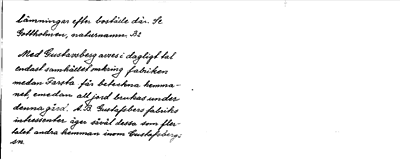 lämningar efter boställe där. Se
Gottholmen, naturnamn. B1
Med Gustavsberg avses i dagligt tal
endast samhället omkring fabriken
medan Farsta får beteckna hemma-
net, emedan all jord brukas under
denna gård. A.B. Gustafsbers fabriks
intressenter äger såväl dessa som fler-
talet andra hemman inom Gustafsbergs
sn